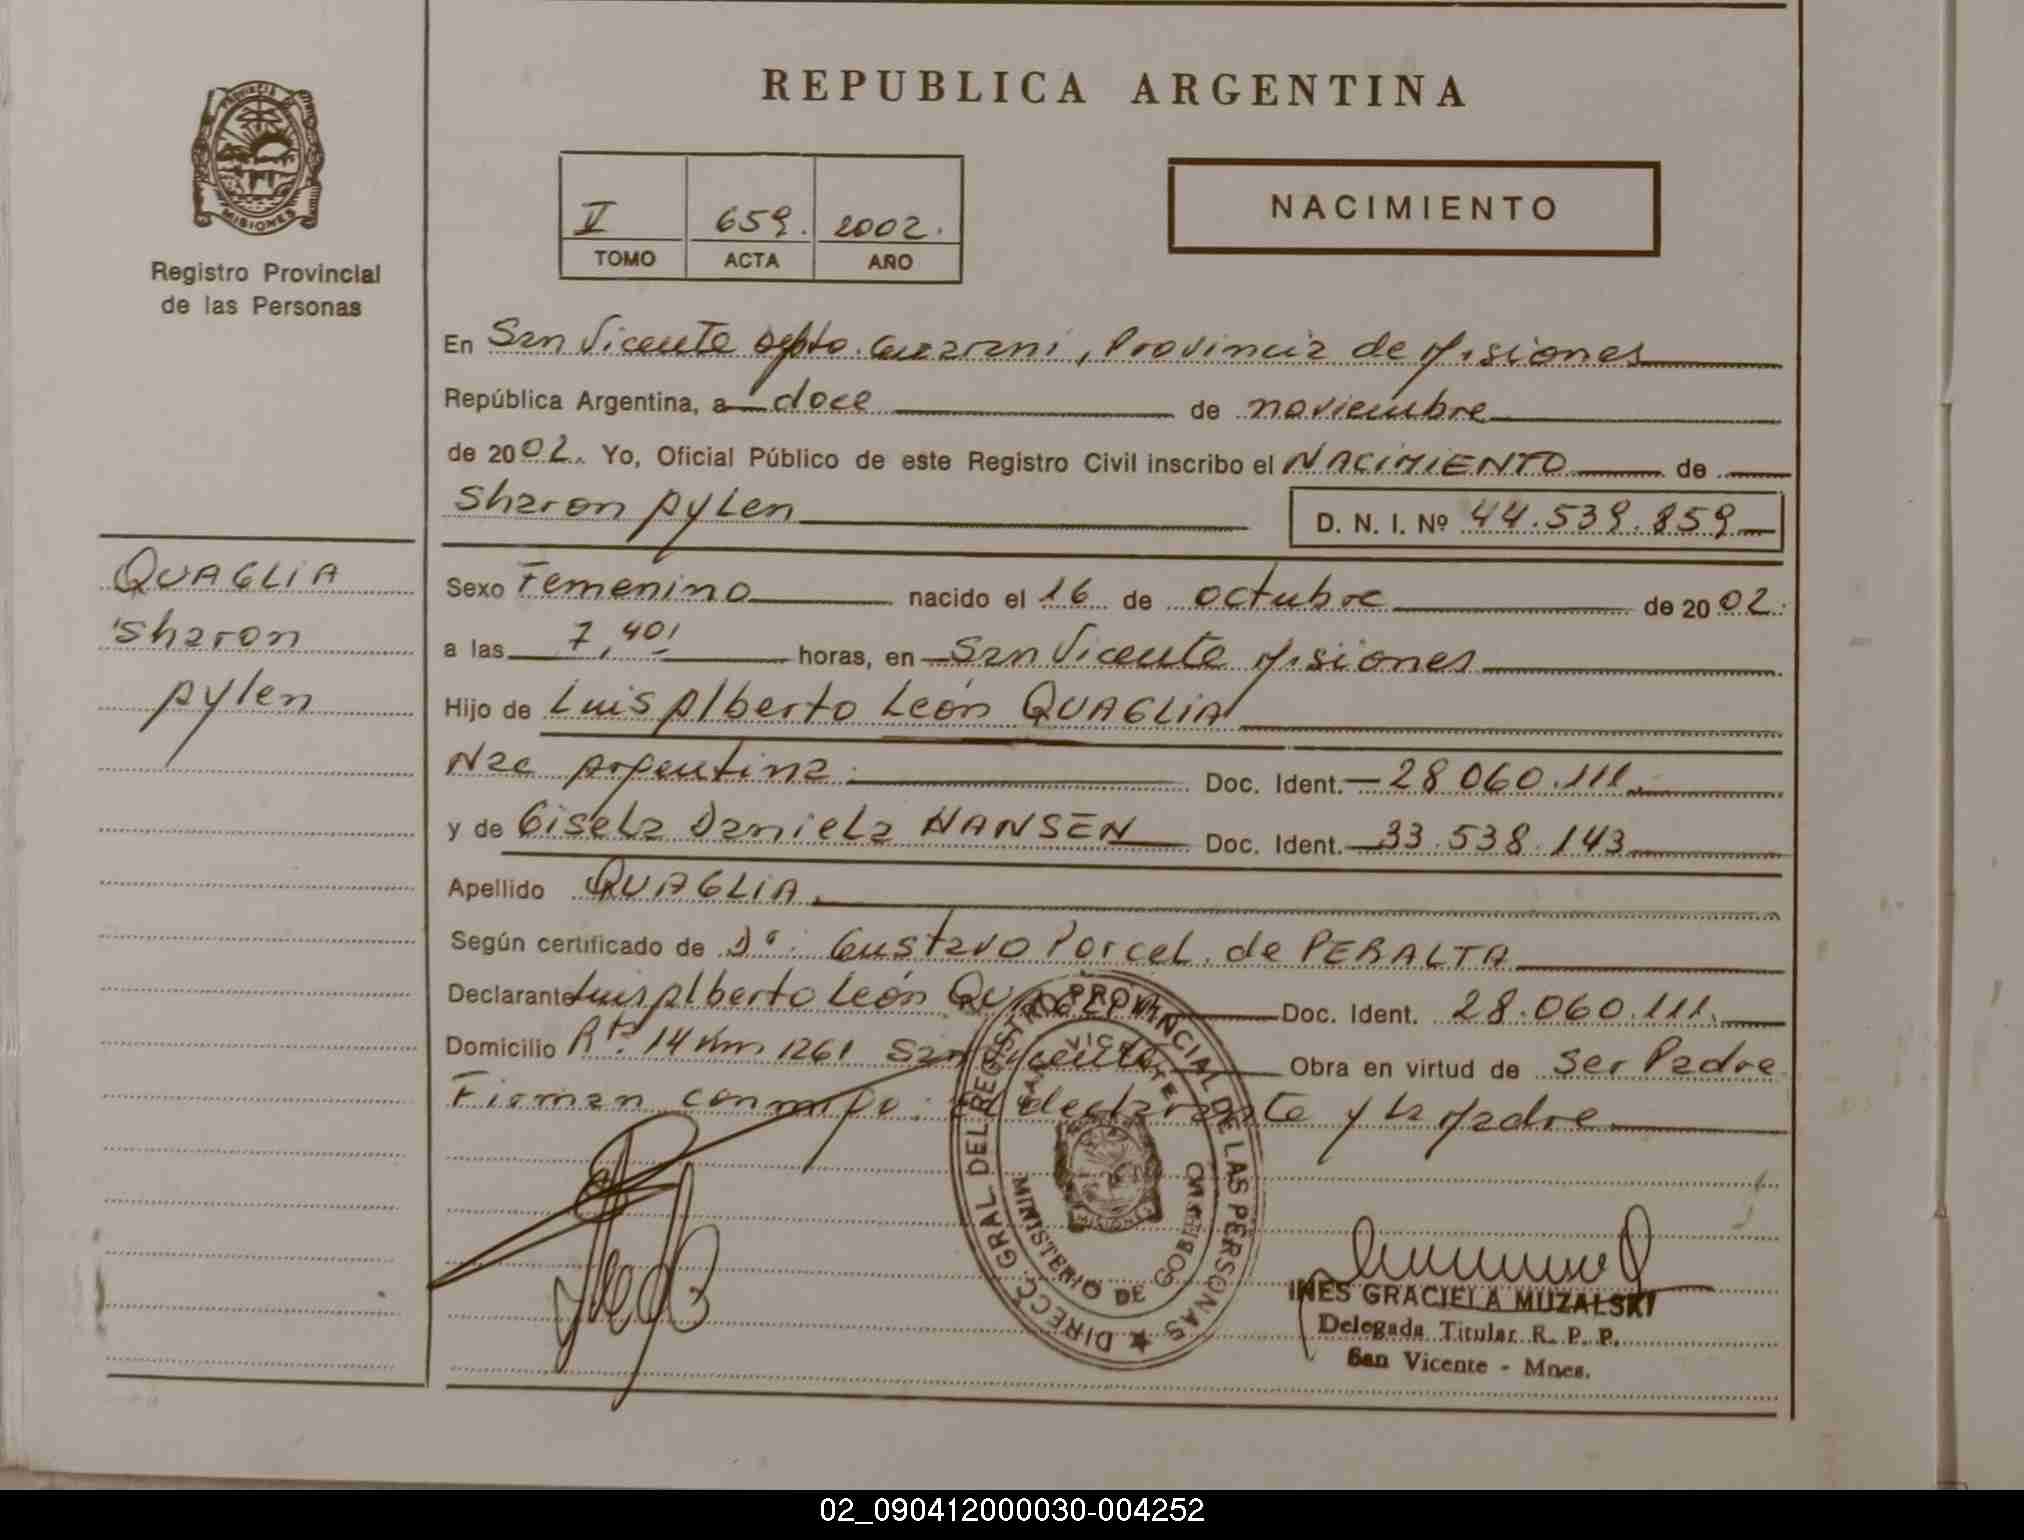 REPUBLICA ARGENTINA
PROVINCIA DE MISIONES
Registro Provincial
de las Personas
V 659. 2002.
TOMO ACTA AÑO
NACIMIENTO
En San Vicente Dpto. Guaraní, Provincia de Misiones
República Argentina, a doce de noviembre
de 2002. Yo, Oficial Público de este Registro Civil inscribo el NACIMIENTO de
Sharon Aylen D. N. I. Nº 44.539.859
QUAGLIA
Sharon
Aylen
Sexo Femenino nacido el 16 de octubre de 2002.
a las 7,40' horas, en San Vicente Misiones
Hijo de Luis Alberto León QUAGLIA
Nac Argentina. Doc. Ident. 28 060.111.
y de Gisela Daniela HANSEN Doc. Ident. 33.538.143
Apellido QUAGLIA.
Según certificado de Dr. Gustavo Porcel de PERALTA
Declarante Luis Alberto León QUAGLIA Doc. Ident. 28.060.111.
Domicilio Rta. 14 Km 1261 San Vicente Obra en virtud de Ser Padre
Firman conmigo: el declarante y la Madre
DIRECC. GRAL. DEL REGISTRO PROVINCIAL DE LAS PERSONAS
SAN VICENTE
MISIONES
MINISTERIO DE GOBIERNO
INES GRACIELA MUZALSKI
Delegada Titular R. P. P.
San Vicente - Mnes.
02_090412000030-004252